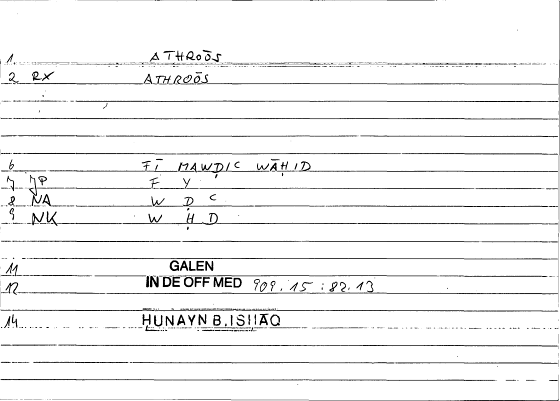 1. ATHROŌS
2 RX ATHROŌS
6 FĪ MAWḌIC WĀḤID
7 JP F Y
8 NA W Ḍ C
9 NK W Ḥ D
11 GALEN
12 IN DE OFF MED 909.15:82.13
14 HUNAYN B.ISHĀQ